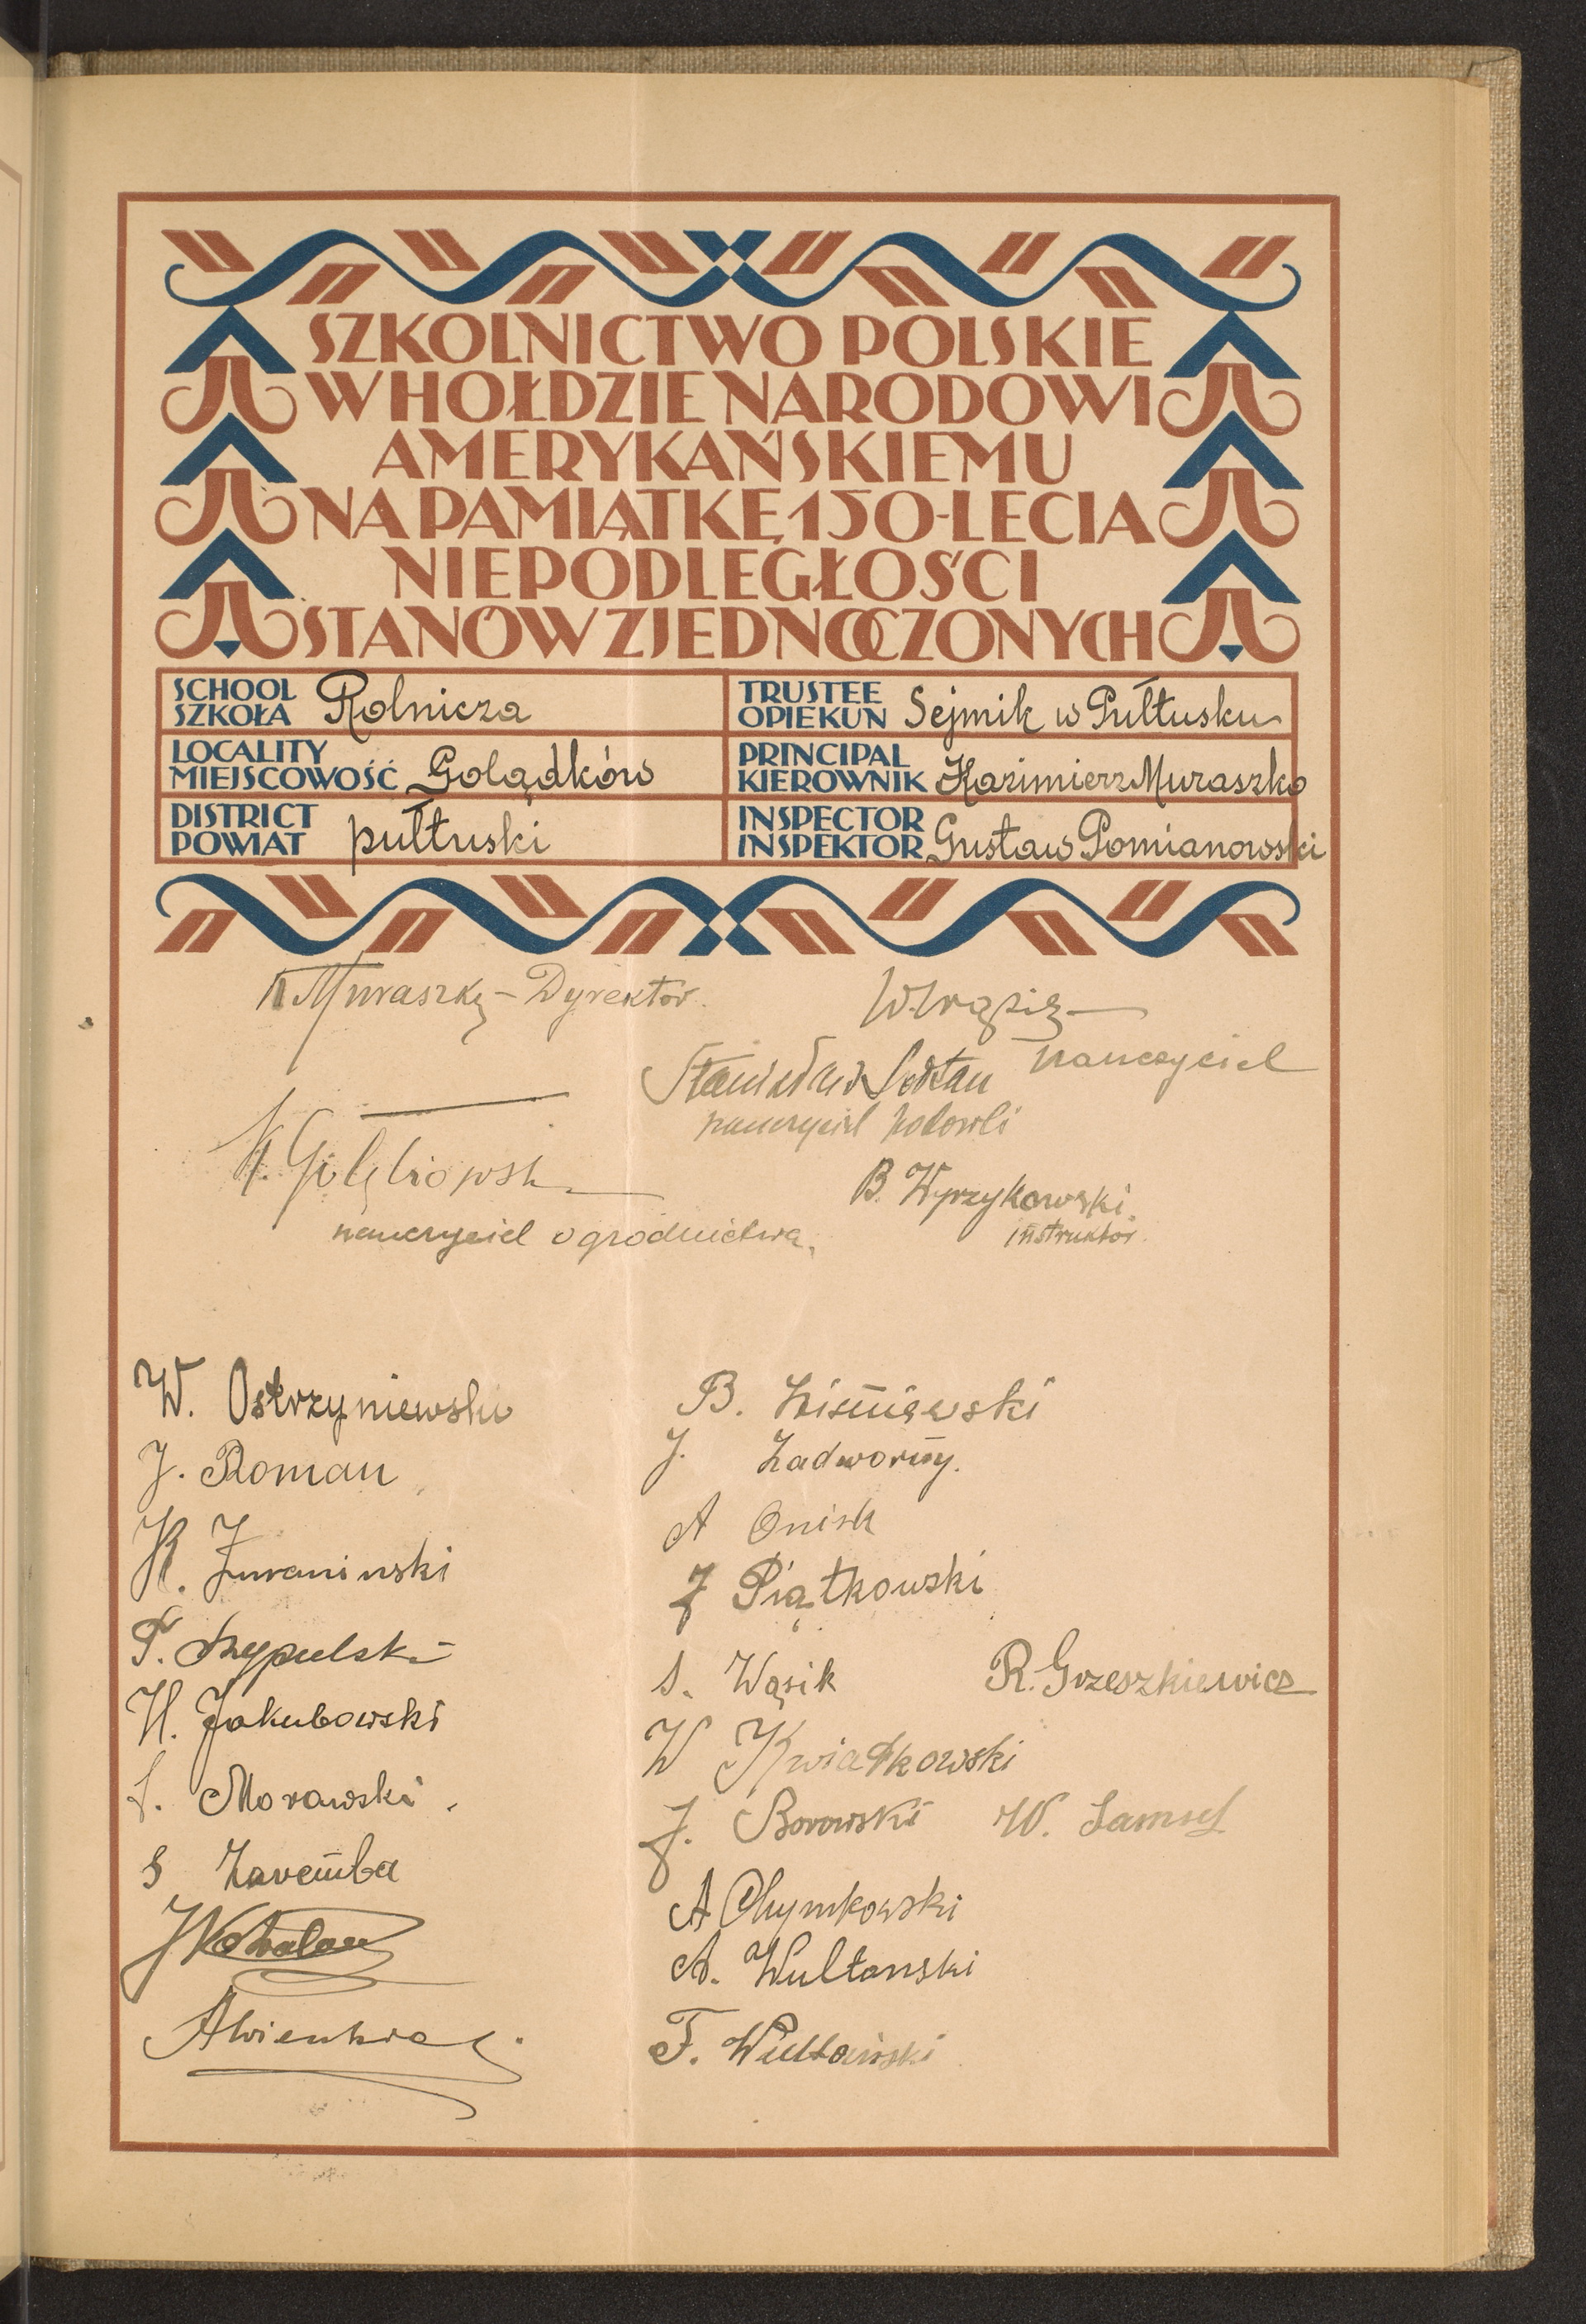 SZKOLNICTWO POLSKIE
W HOŁDZIE NARODOWI
AMERYKAŃSKIEMU
NA PAMIĄTKĘ 150-LECIA
NIEPODLEGŁOŚCI
STANÓW ZJEDNOCZONYCH
SCHOOL
SZKOŁA Rolnicza
TRUSTEE
OPIEKUN Sejmik w Pułtusku
LOCALITY
MIEJSCOWOŚĆ Golądków
PRINCIPAL
KIEROWNIK Kazimierz Muraszko
DISTRICT
POWIAT pułtuski
INSPECTOR
INSPEKTOR Gustaw Pomianowski
K Muraszko - Dyrektor.
nauczyciel
Stanisław Sołtan
nauczyciel hodowli
nauczyciel ogrodnictwa.
B. Wyrzykowski.
instruktor.
W. Ostrzyniewski
J. Roman
K. Żurawiński
F. Szypulski
H. Jakubowski
S. Morawski.
S Zaremba
B. Wiśniewski
J. Zadworny.
A Onisk
J Piątkowski
S. Wąsik
R. Grzeszkiewicz
W Kwiatkowski
J. Borowski
W. Samsel
A Chymkowski
A. Wultanski
F. Wultański